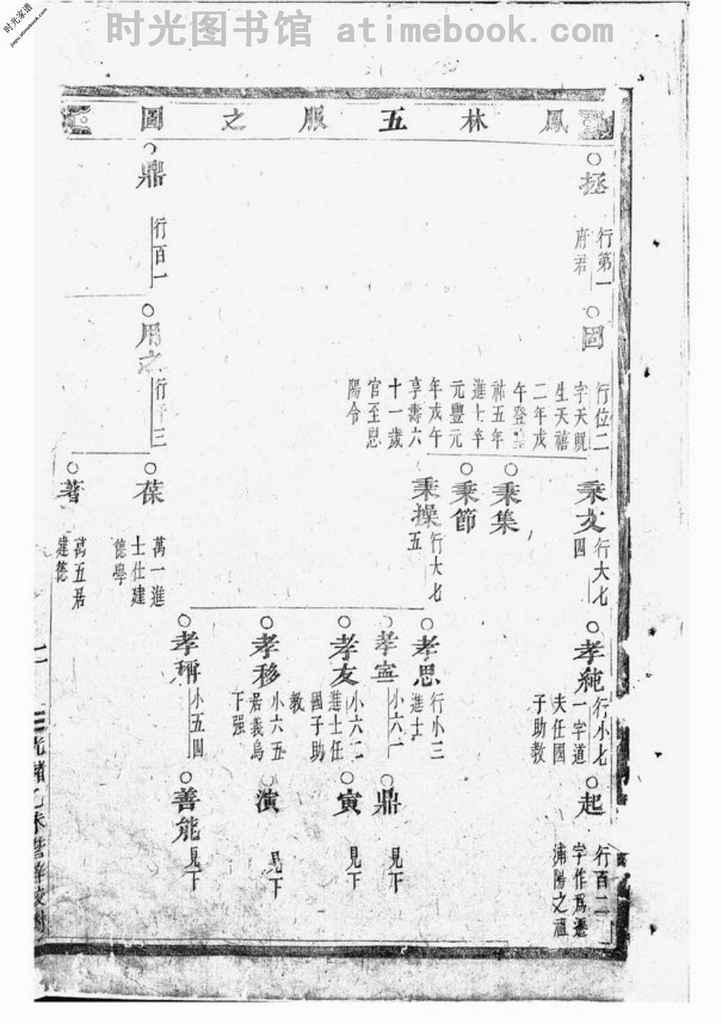 时光图书馆 atimebook.com
时光家谱
jiapu.atimebook.com
鳳林五服之圖
拯
行第一
府君
圖
行位二
字天覬
生天禧
二年戊
午登
祐五年
進士辛
元豐元
年戊午
享壽六
十一歲
官至恩
陽令
秉文
行大七
四
秉集
秉節
秉操
行大七
五
孝純
行小七
一字道
夫任國
子助教
起
行百二
字作爲遷
浦陽之祖
孝思
行小三
進士
孝寧
小六一
鼎
見下
孝友
小六二
進士任
國子助
教
寅
見下
孝移
小六五
居義烏
下强
演
見下
孝稱
小五四
善能
見下
鼎
行百一
用之
行千三
葆
萬一進
士仕建
德學
著
萬五居
建德
二
光緒乙未